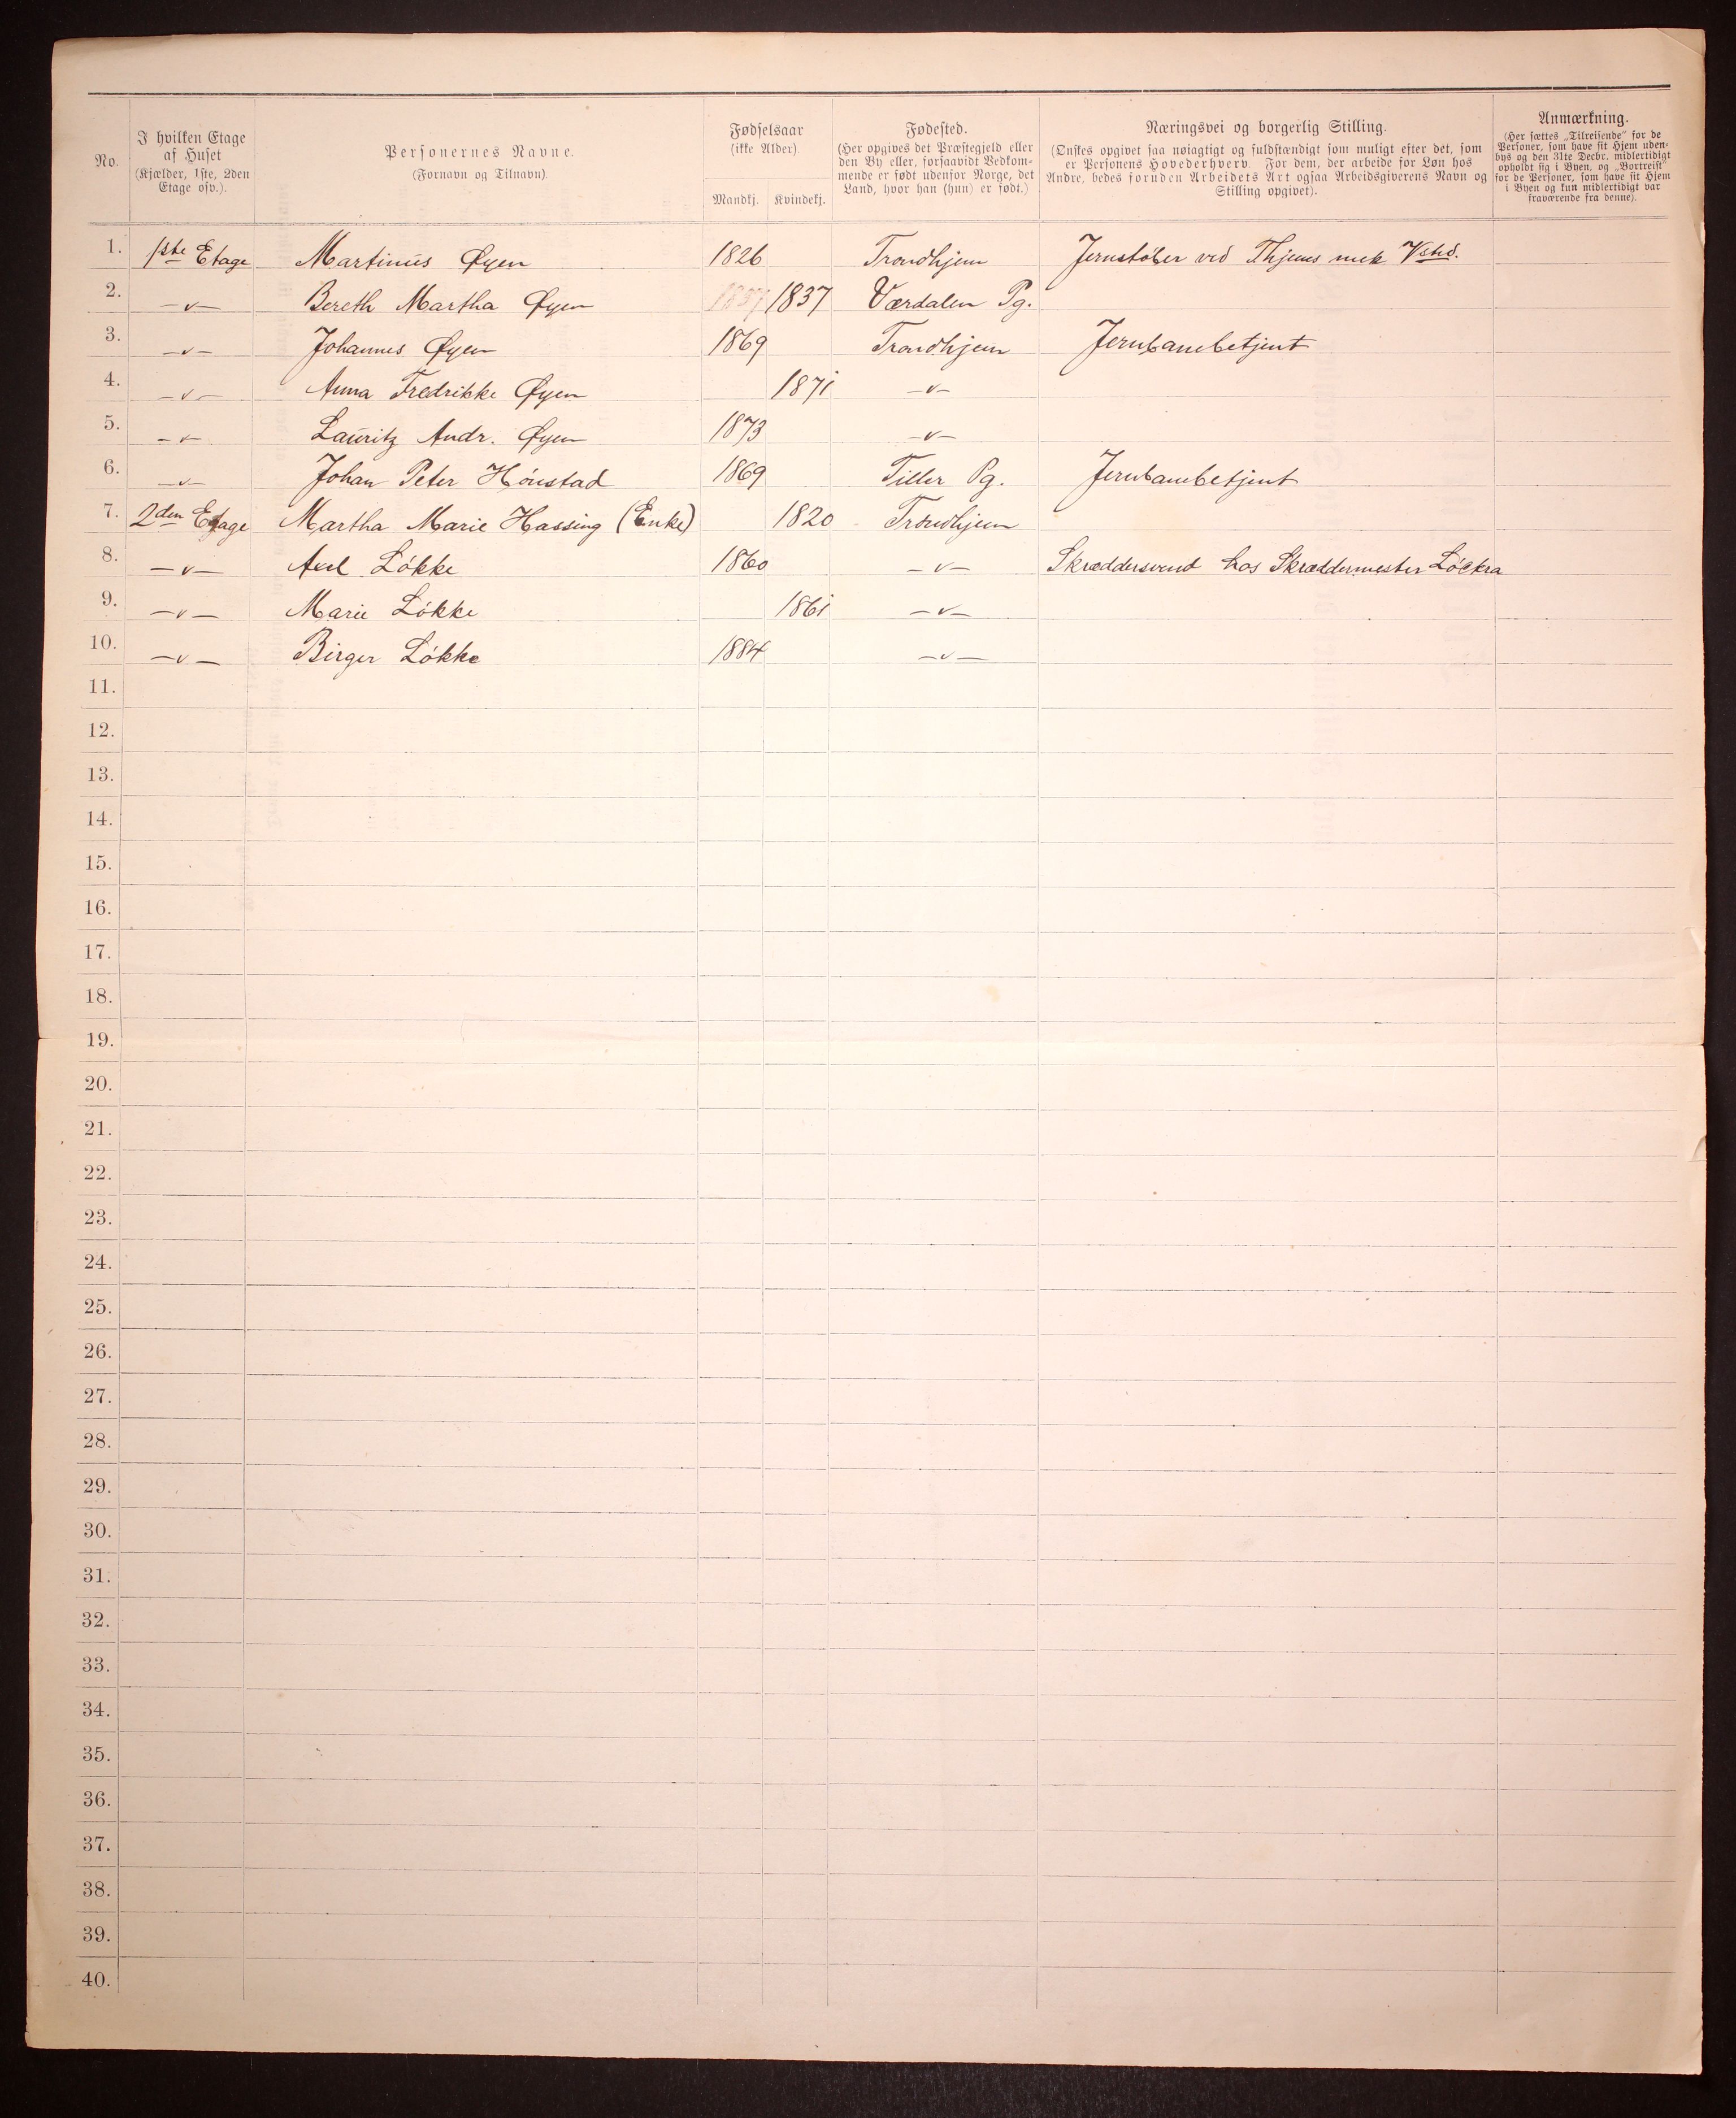 No.
I hvilken Etage
af Huset
(Kjælder, 1ste, 2den
Etage osv.).
Personernes Navne.
(Fornavn og Tilnavn).
Fødselsaar
(ikke Alder).
Mandkj. Kvindekj.
Fødested.
(Her opgives det Præstegjeld eller
den By eller, forsaavidt Vedkom-
mende er født udenfor Norge, det
Land, hvor han (hun) er født.)
Næringsvei og borgerlig Stilling.
(Ønskes opgivet saa nøiagtigt og fuldstændigt som muligt efter det, som
er Personens Hovederhverv. For dem, der arbeide for Løn hos
Andre, bedes foruden Arbeidets Art ogsaa Arbeidsgiverens Navn og
Stilling opgivet).
Anmærkning.
(Her sættes „Tilreisende" for de
Personer, som have sit Hjem uden-
bys og den 31te Decbr. midlertidigt
opholdt sig i Byen, og „Bortreist"
for de Personer, som have sit Hjem
i Byen og kun midlertidigt var
fraværende fra denne).
1. 1ste Etage Martinus Øyen 1826 Trondhjem Jernstøber ved Thjems mek Vsted.
2. —v— Bereth Martha Øyen 1837 1837 Værdalen Pg.
3. —v— Johannes Øyen 1869 Trondhjem Jernbanebetjent
4. —v— Anna Fredrikke Øyen 1871 —v—
5. —v— Lauritz Andr. Øyen 1873 —v—
6. —v— Johan Peter Hónstad 1869 Tiller Pg. Jernbanebetjent
7. 2den Etage Martha Marie Hassing (Enke) 1820 Trondhjem
8. —v— Axel Lókke 1860 —v— Skræddersvend hos Skræddermester Løckra
9. —v— Marie Lókke 1861 —v—
10. —v— Birger Lókke 1884 —v—
11.
12.
13.
14.
15.
16.
17.
18.
19.
20.
21.
22.
23.
24.
25.
26.
27.
28.
29.
30.
31.
32.
33.
34.
35.
36.
37.
38.
39.
40.